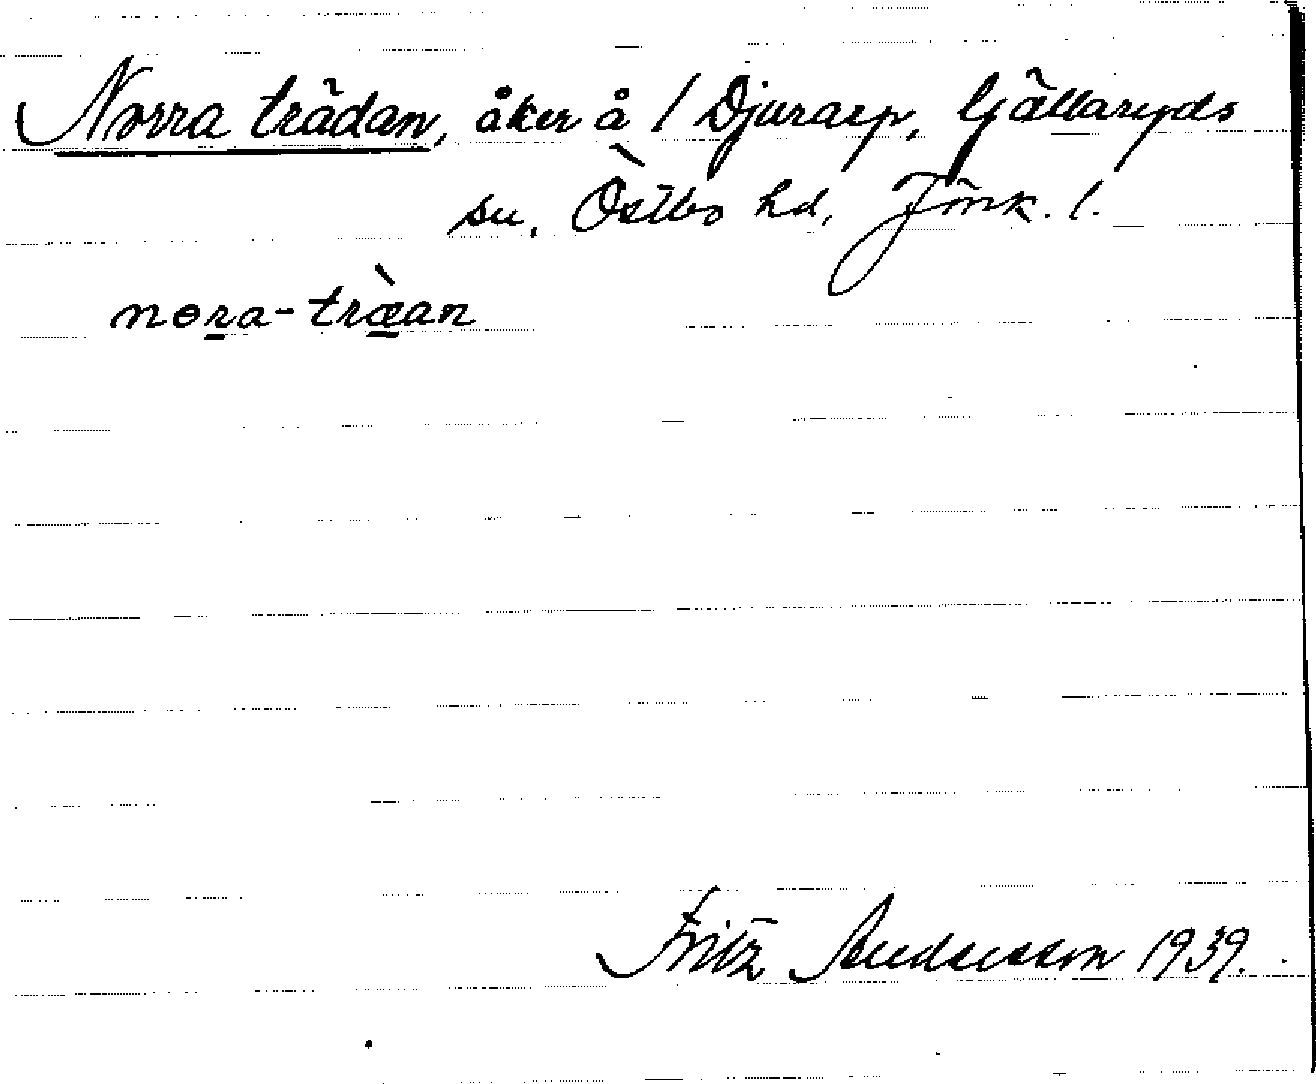 Norra trädan, åker å / Djurarp, Gällaryds
sn, Östbo hd, Jönk. l.
nora-träan
Fritz Andersson 1939.